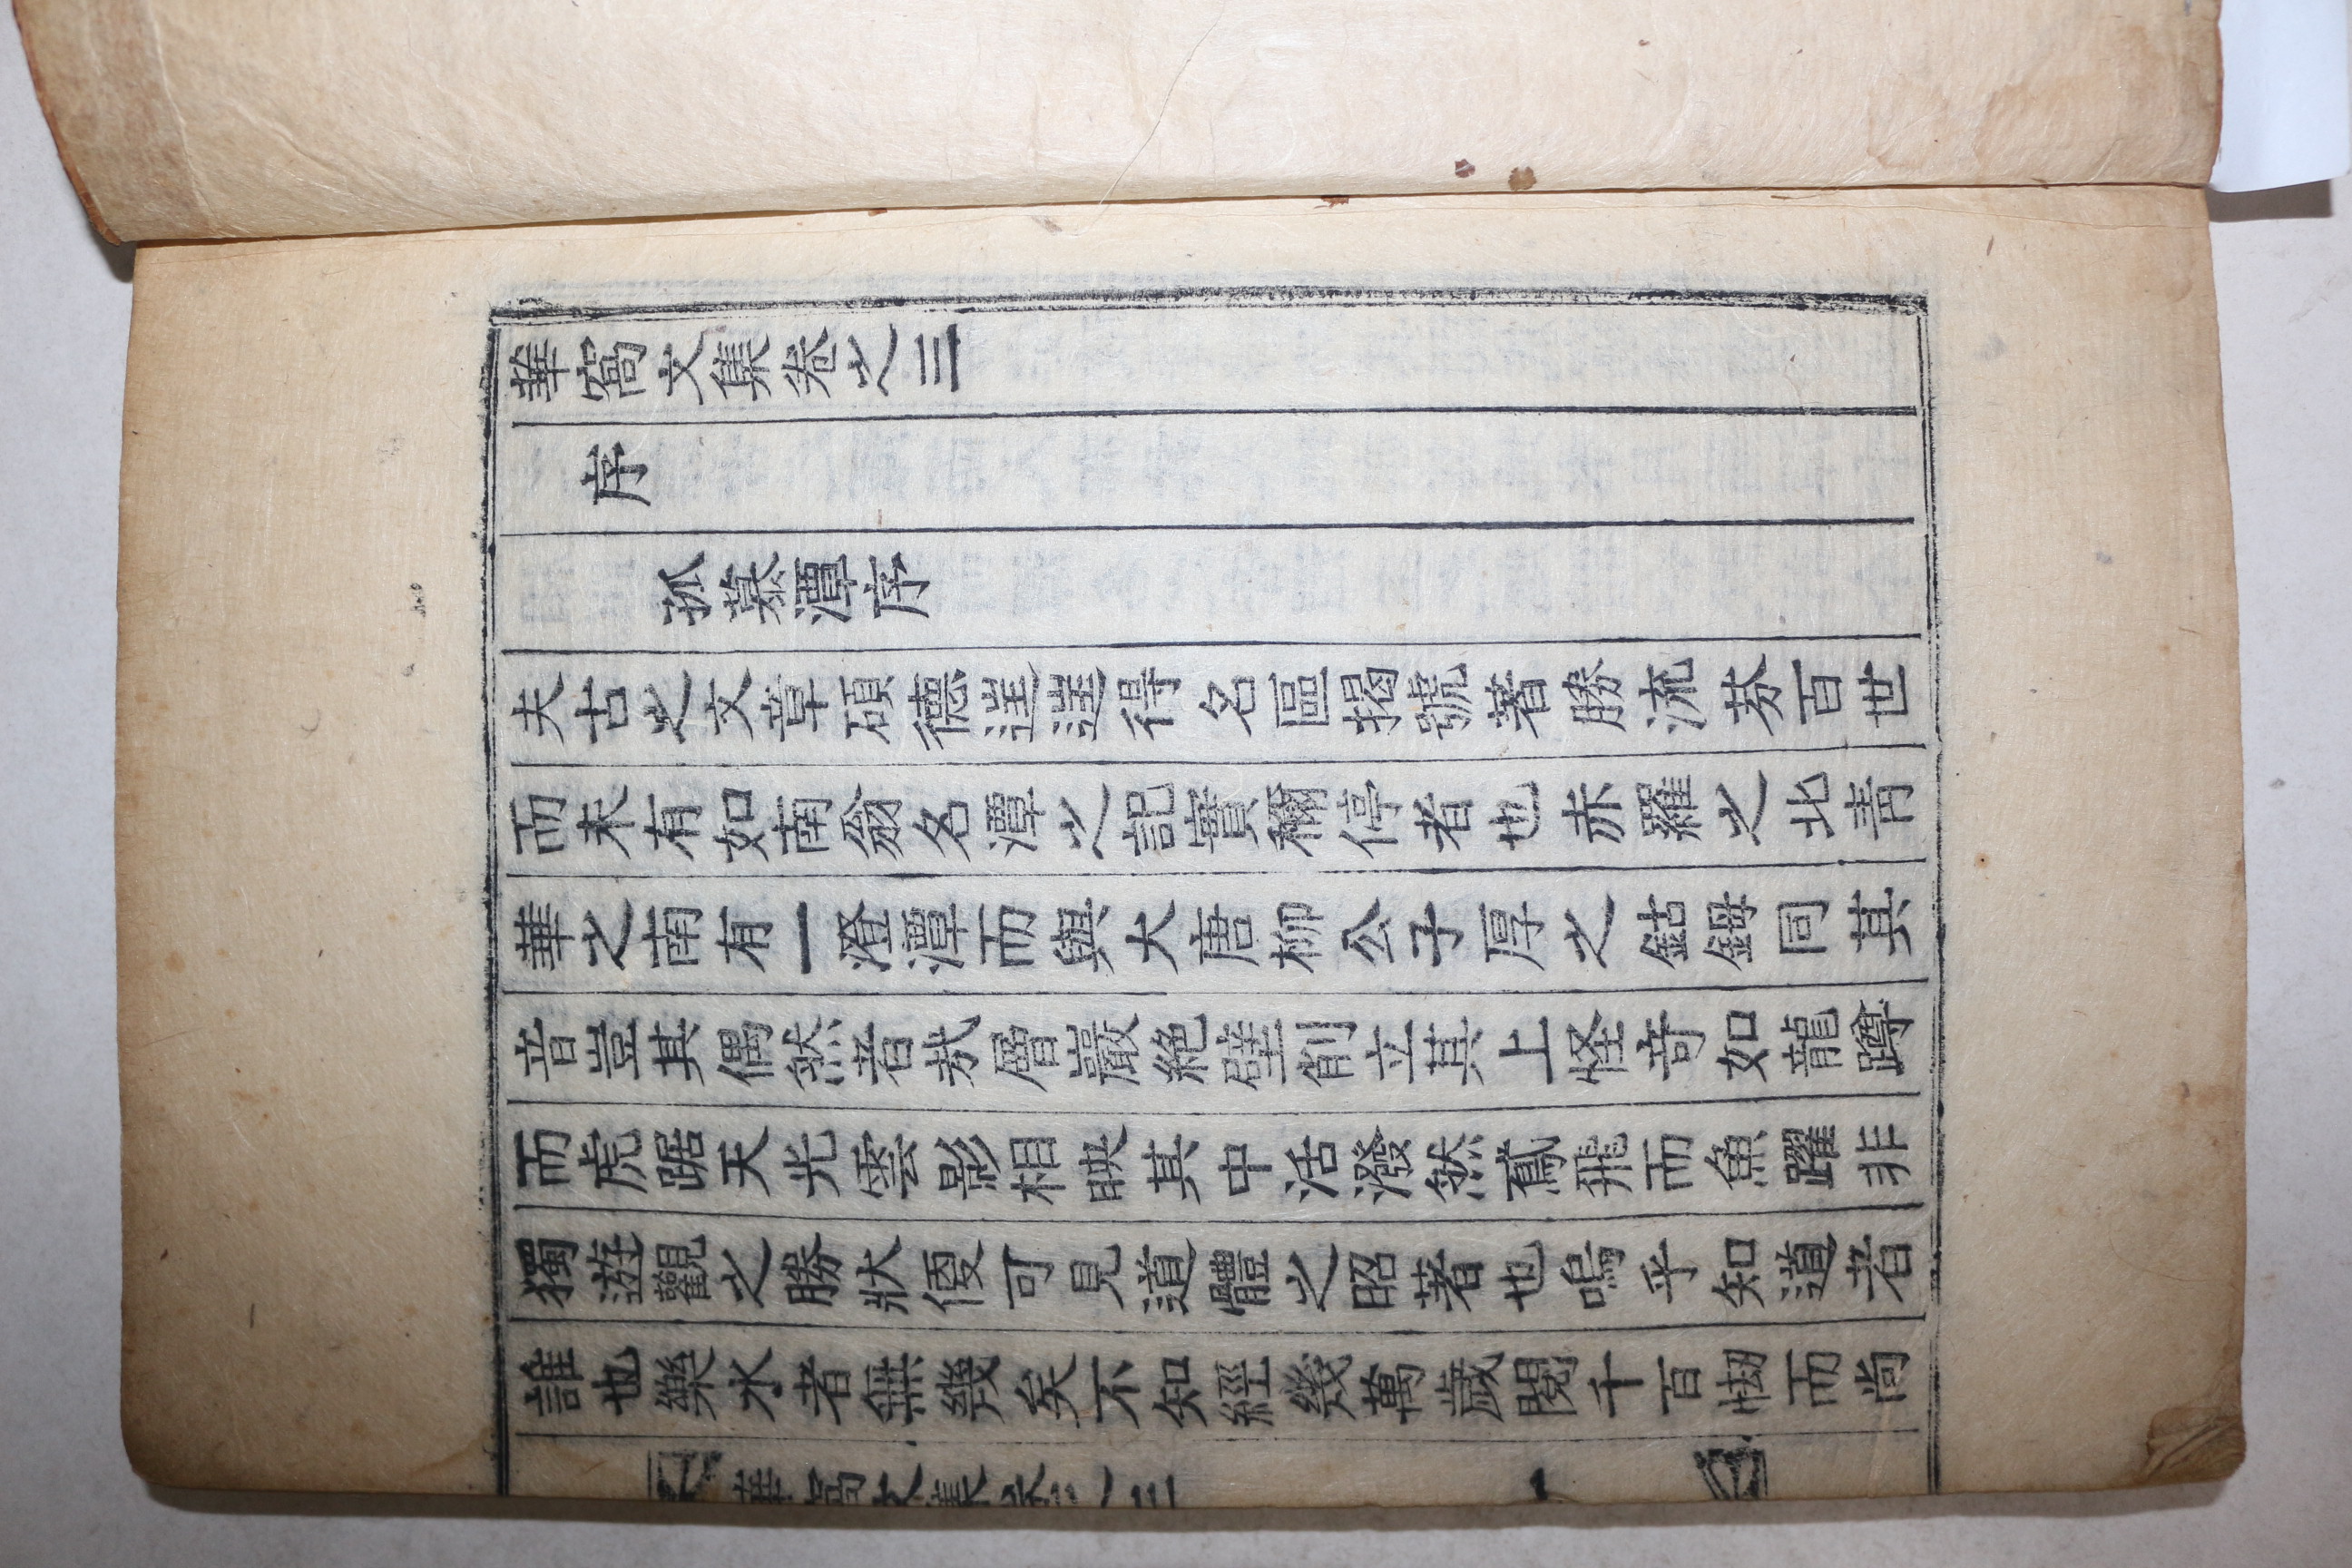 華窩文集卷之三
序
孤慕潭序
夫古之文章碩德往往得名區揭號著勝流芬百世
而未有如南翁名潭之記實稱停者也赤羅之北青
華之南有一澄潭而與大唐柳公子厚之鈷鉧同其
音豈其偶然音哉層巖絶壁削立其上怪奇如龍蹲
而虎踞天光雲影相映其中活潑然鳶飛而魚躍非
獨遊觀之勝狀便可見道體之昭著也嗚乎知道者
誰也樂水者無幾矣不知經幾萬歲閱千百刼而尚
華窩文集卷之三 一